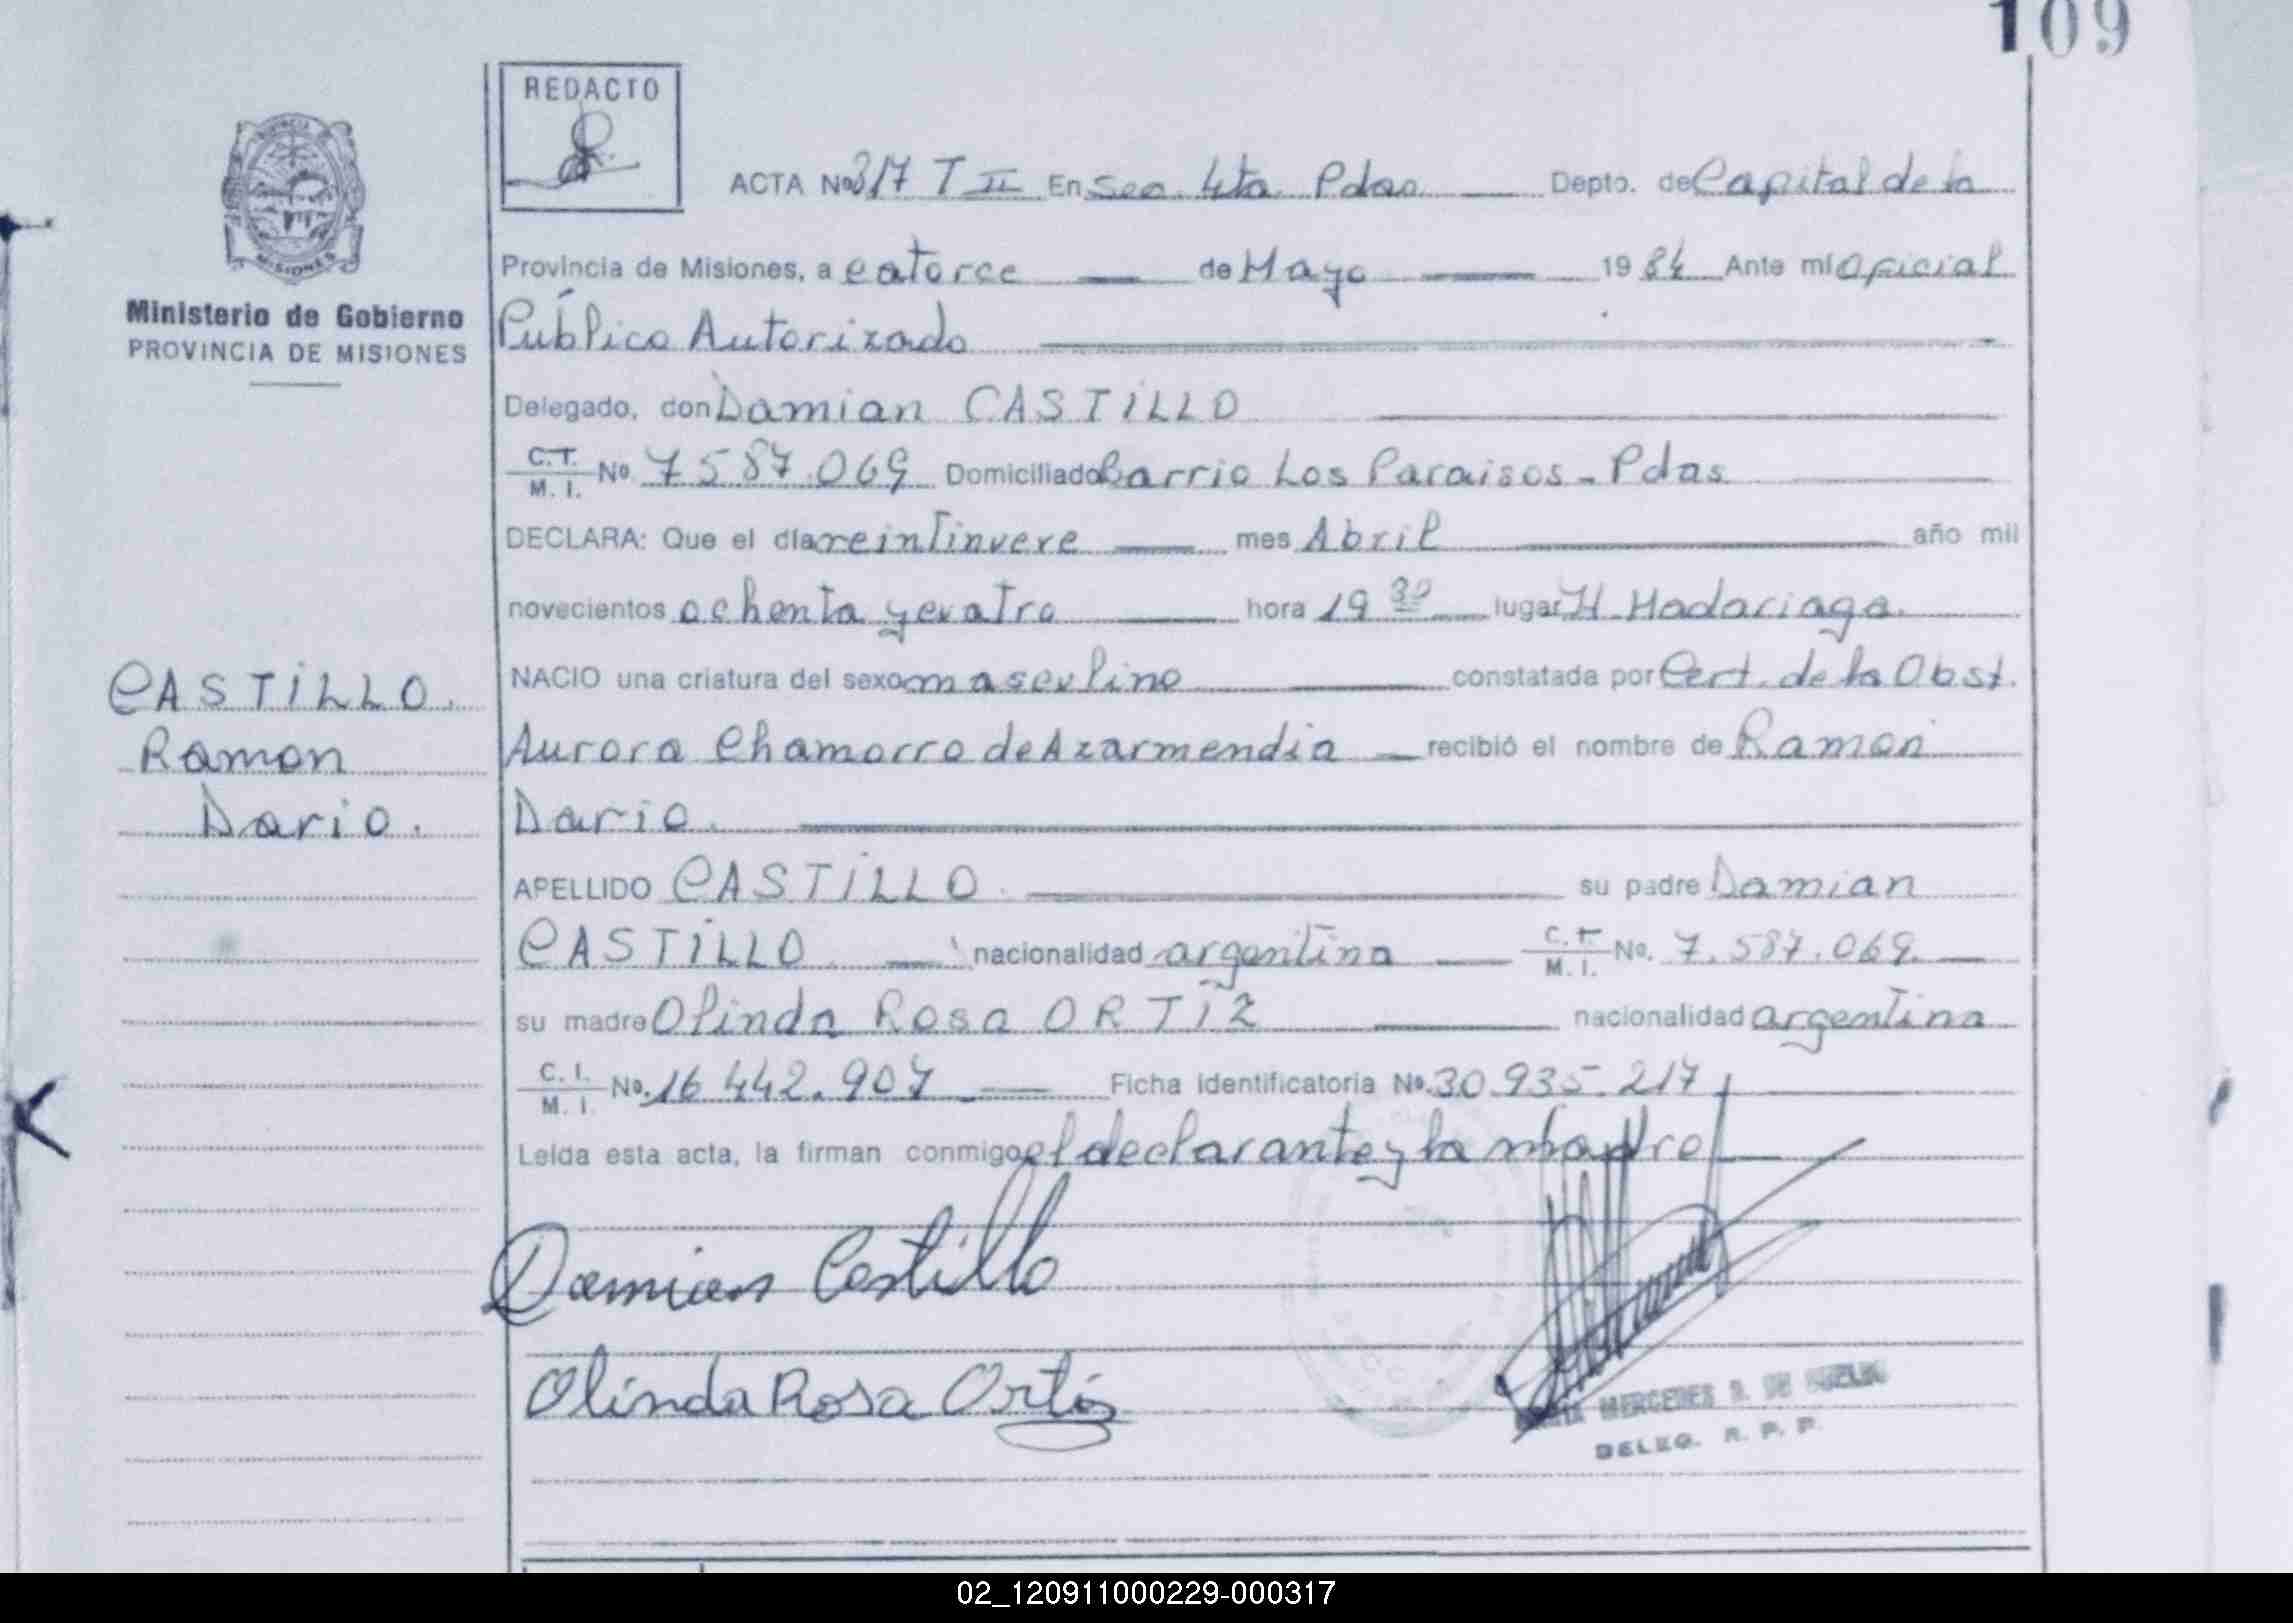 109
REDACTO
ACTA Nº 317 T II En Sec. 4ta. Pdas. Depto. de Capital de la
Provincia de Misiones, a catorce de Mayo 1984 Ante mí Oficial
Público Autorizado
Ministerio de Gobierno
PROVINCIA DE MISIONES
MISIONES
Delegado, don Damian CASTILLO
C.T. M. I. No. 7587.069 Domiciliado Barrio Los Paraisos - Pdas
DECLARA: Que el día veintinueve mes Abril año mil
novecientos ochenta y cuatro hora 19 30 lugar H. Madariaga.
NACIO una criatura del sexo masculino constatada por Cert. de la Obst.
Aurora Chamorro de Azarmendia recibió el nombre de Ramon
Dario.
CASTILLO.
Ramon
Dario.
APELLIDO CASTILLO. su padre Damian
CASTILLO nacionalidad argentina C. T. M. I. No. 7.587.069.
su madre Olinda Rosa ORTiZ nacionalidad argentina
C. I. M. I. No. 16 442.907 Ficha identificatoria No. 30.935.217
Leída esta acta, la firman conmigo el declarante y la madre
Damian Castillo
Olinda Rosa Ortiz
MERCEDES
DELEG. R. P. P.
02_120911000229-000317